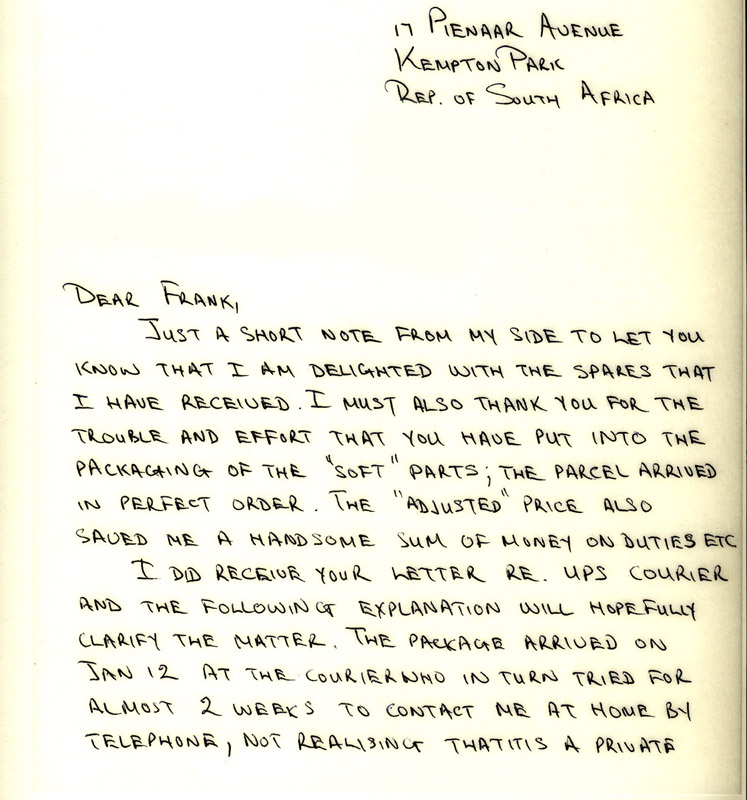 17 PIENAAR AVENUE
KEMPTON PARK
REP. OF SOUTH AFRICA
DEAR FRANK,
JUST A SHORT NOTE FROM MY SIDE TO LET YOU
KNOW THAT I AM DELIGHTED WITH THE SPARES THAT
I HAVE RECEIVED. I MUST ALSO THANK YOU FOR THE
TROUBLE AND EFFORT THAT YOU HAVE PUT INTO THE
PACKAGING OF THE "SOFT" PARTS; THE PARCEL ARRIVED
IN PERFECT ORDER. THE "ADJUSTED" PRICE ALSO
SAVED ME A HANDSOME SUM OF MONEY ON DUTIES ETC
I DID RECEIVE YOUR LETTER RE. UPS COURIER
AND THE FOLLOWING EXPLANATION WILL HOPEFULLY
CLARIFY THE MATTER. THE PACKAGE ARRIVED ON
JAN 12 AT THE COURIER WHO IN TURN TRIED FOR
ALMOST 2 WEEKS TO CONTACT ME AT HOME BY
TELEPHONE, NOT REALISING THAT IT IS A PRIVATE